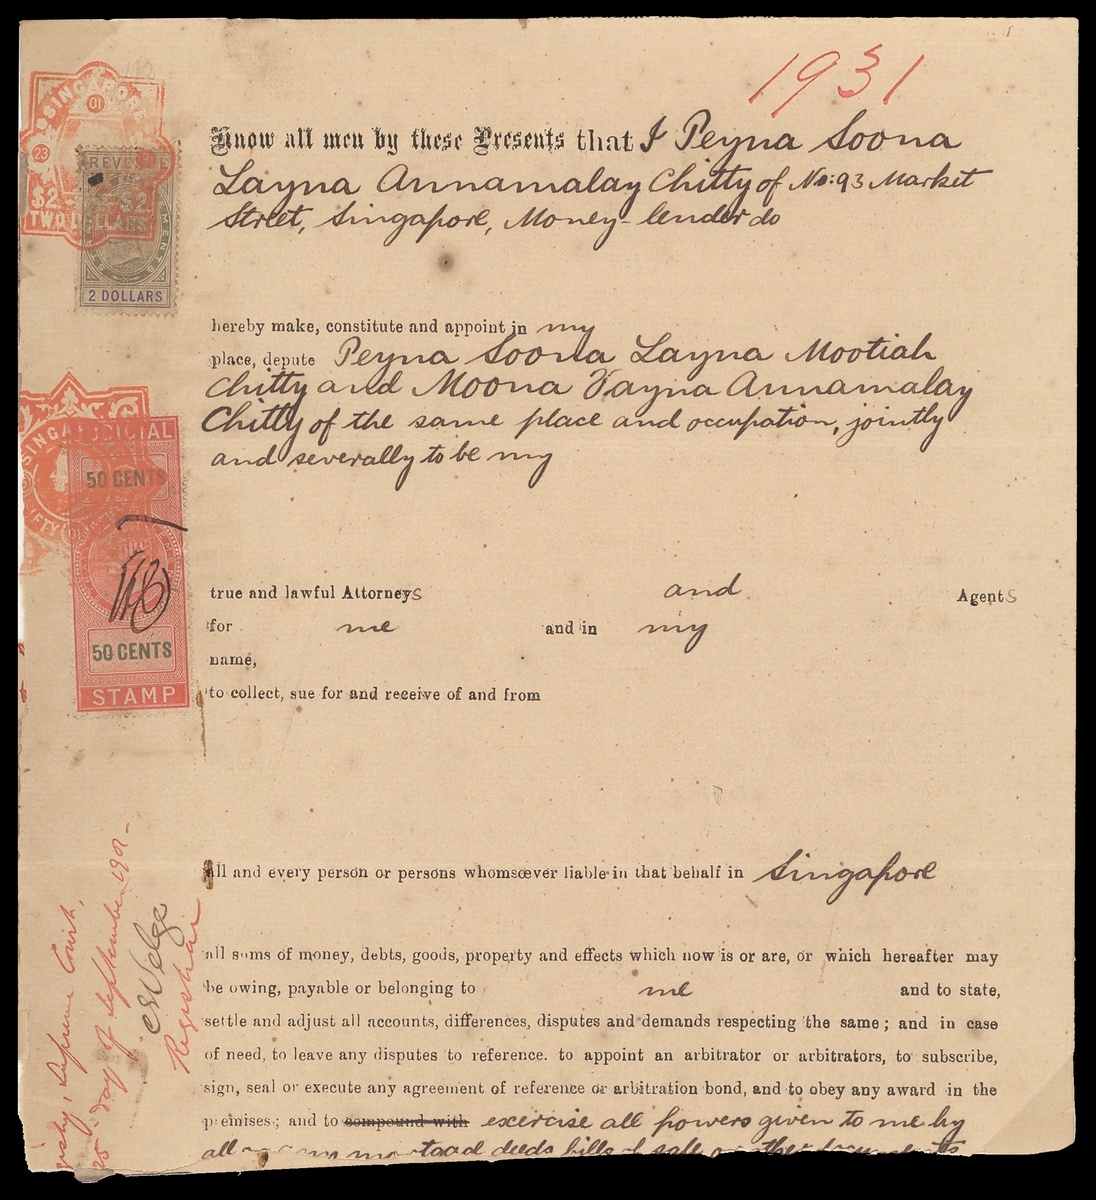 1931
Know all men by these Presents that I Peyna Soona
Layna Annamalay Chitty of No: 93 Market
Street, Singapore, Money-lender do
hereby make, constitute and appoint in my
place, depute Peyna Soona Layna Mootiah
Chitty and Moona Vayna Annamalay
Chitty of the same place and occupation, jointly
and severally to be my
true and lawful Attorneys and Agents
for me and in my
name,
to collect, sue for and receive of and from
all and every person or persons whomsoever liable in that behalf in Singapore
all sums of money, debts, goods, property and effects which now is or are, or which hereafter may
be owing, payable or belonging to me and to state,
settle and adjust all accounts, differences, disputes and demands respecting the same; and in case
of need, to leave any disputes to reference. to appoint an arbitrator or arbitrators, to subscribe,
sign, seal or execute any agreement of reference or arbitration bond, and to obey any award in the
premises; and to compound with exercise all powers given to me by
all deeds bills of sale
SINGAPORE
01
23
$2 $2
TWO DOLLARS
REVENUE
2 DOLLARS
SINGA
JUDICIAL
50 CENTS
50 CENTS
STAMP
Supreme Court,
25 day of September 1901-
Registrar